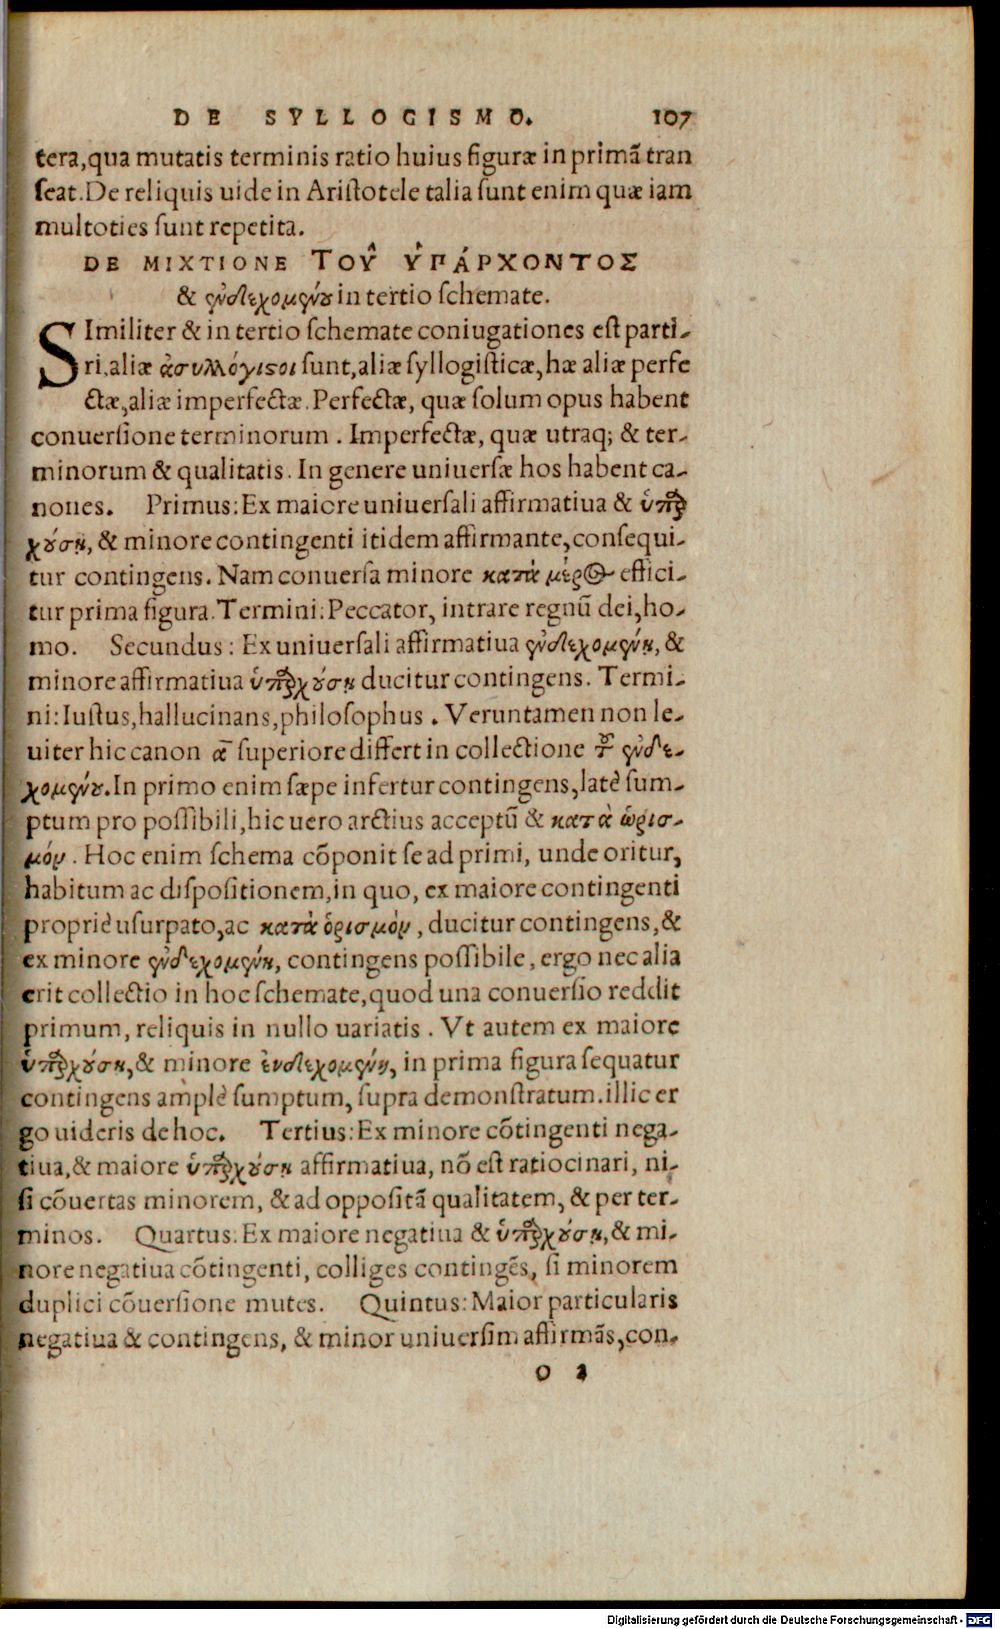 DE SYLLOGISMO. 107
tera,qua mutatis terminis ratio huius figuræ in primã tran
seat.De reliquis uide in Aristotele talia sunt enim quæ iam
multoties sunt repetita.
DE MIXTIONE ΤΟΥ͂ ὙΠΆΡΧΟΝΤΟΣ
& ἐνδεχομένου in tertio schemate.
SImiliter & in tertio schemate coniugationes est parti-
ri,aliæ ἀσυλλόγιστοι sunt,aliæ syllogisticæ,hæ aliæ perfe
ctæ,aliæ imperfectæ.Perfectæ, quæ solum opus habent
conuersione terminorum . Imperfectæ, quæ utraq; & ter-
minorum & qualitatis. In genere uniuersæ hos habent ca-
nones. Primus:Ex maiore uniuersali affirmatiua & ὑπαρ
χούσῃ, & minore contingenti itidem affirmante,consequi-
tur contingens. Nam conuersa minore κατὰ μέρος effici-
tur prima figura.Termini:Peccator, intrare regnũ dei,ho-
mo. Secundus: Ex uniuersali affirmatiua ἐνδεχομένῃ, &
minore affirmatiua ὑπαρχούσῃ ducitur contingens. Termi-
ni:Iustus,hallucinans,philosophus . Veruntamen non le-
uiter hic canon à superiore differt in collectione τοῦ ἐνδε-
χομένου.In primo enim sæpe infertur contingens,latè sum-
ptum pro possibili,hic uero arctius acceptũ & κατὰ ὡρισ-
μόν . Hoc enim schema cõponit se ad primi, unde oritur,
habitum ac dispositionem,in quo, ex maiore contingenti
propriè usurpato,ac κατὰ ὁρισμὸν, ducitur contingens,&
ex minore ἐνδεχομένῃ, contingens possibile, ergo nec alia
erit collectio in hoc schemate,quod una conuersio reddit
primum, reliquis in nullo uariatis . Vt autem ex maiore
ὑπαρχούσῃ,& minore ἐνδεχομένῃ, in prima figura sequatur
contingens amplè sumptum, supra demonstratum.illic er
go uideris de hoc. Tertius:Ex minore cõtingenti nega-
tiua,& maiore ὑπαρχούσῃ affirmatiua, nõ est ratiocinari, ni-
si cõuertas minorem, & ad oppositã qualitatem, & per ter-
minos. Quartus:Ex maiore negatiua & ὑπαρχούσῃ,& mi-
nore negatiua cõtingenti, colliges contingẽs, si minorem
duplici cõuersione mutes. Quintus:Maior particularis
negatiua & contingens, & minor uniuersim affirmãs,con-
O 2
Digitalisierung gefördert durch die Deutsche Forschungsgemeinschaft - DFG